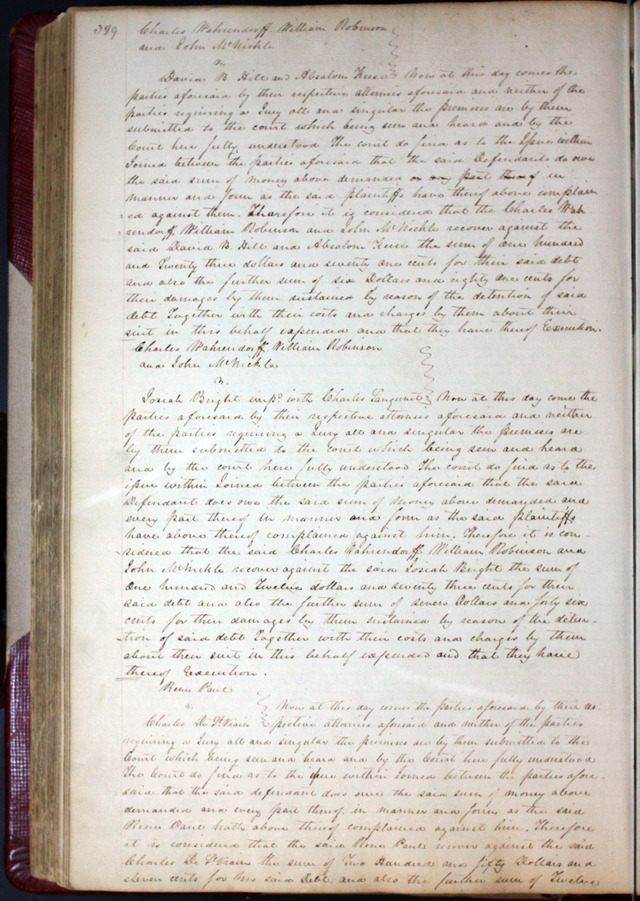 389 Charles Wahrendorff William Robinson
and John McNickle
vs.
David B. Hill and Absalom Now at this day comes the
parties aforesaid by their respective attornies aforesaid and neither of the
parties requiring a Jury all and singular the premises are by them
submitted to the court which being seen and heard and by the
Court here fully understood the court do find as to the Issue within
Joined between the parties aforesaid that the said Defendants do owe
the said sum of money above demanded or any part thereof in
manner and form as the said plaintiffs have thereof above complain
ed against them. Therefore it is considered that the Charles Wah-
rendorff William Robinson and John McNickle recover against the
said David B. Hill and Absalom the sum of One hundred
and Twenty three dollars and seventy one cents for their said debt
and also the further sum of six Dollars and eighty one cents for
their damages by them sustained by reason of the detention of said
debt Together with their costs and charges by them about their
suit in this behalf expended and that they have thereof Execution.
Charles Wahrendorff William Robinson
and John McNickle
vs.
Josiah Bright impd. with Charles Sanguinet Now at this day come the
parties aforesaid by their respective attornies aforesaid and neither
of the parties requiring a Jury all and singular the premises are
by them submitted to the court which being seen and heard
and by the court here fully understood The court do find as to the
issue within Joined between the parties aforesaid that the said
Defendant does owe the said sum of money above demanded and
every part thereof in manner and form as the said plaintiffs
have above thereof complained against him. Therefore it is con-
sidered that the said Charles Wahrendorff William Robinson and
John McNickle recover against the said Josiah Bright the sum of
One hundred and Twelve dollars and seventy three cents for their
said debt and also the further sum of seven Dollars and forty six
cents for their damages by them sustained by reason of the deten-
tion of said debt Together with their costs and charges by them
about their suit in this behalf expended and that they have
thereof Execution.
Rene Paul
vs. Now at this day comes the parties aforesaid by their res-
Charles De St Vrain pective attornies aforesaid and neither of the parties
requiring a Jury all and singular the premises are by them submitted to the
Court which being seen and heard and by the Court here fully understood
The Court do find as to the issue within Joined between the parties afore-
said that the said defendant does owe the said sum of money above
demanded and every part thereof in manner and form as the said
Rene Paul hath above thereof complained against him. Therefore
it is considered that the said Rene Paul recover against the said
Charles De St Vrain the sum of Two Hundred and fifty Dollars and
eleven cents for his said Debt and also the further sum of Twelve